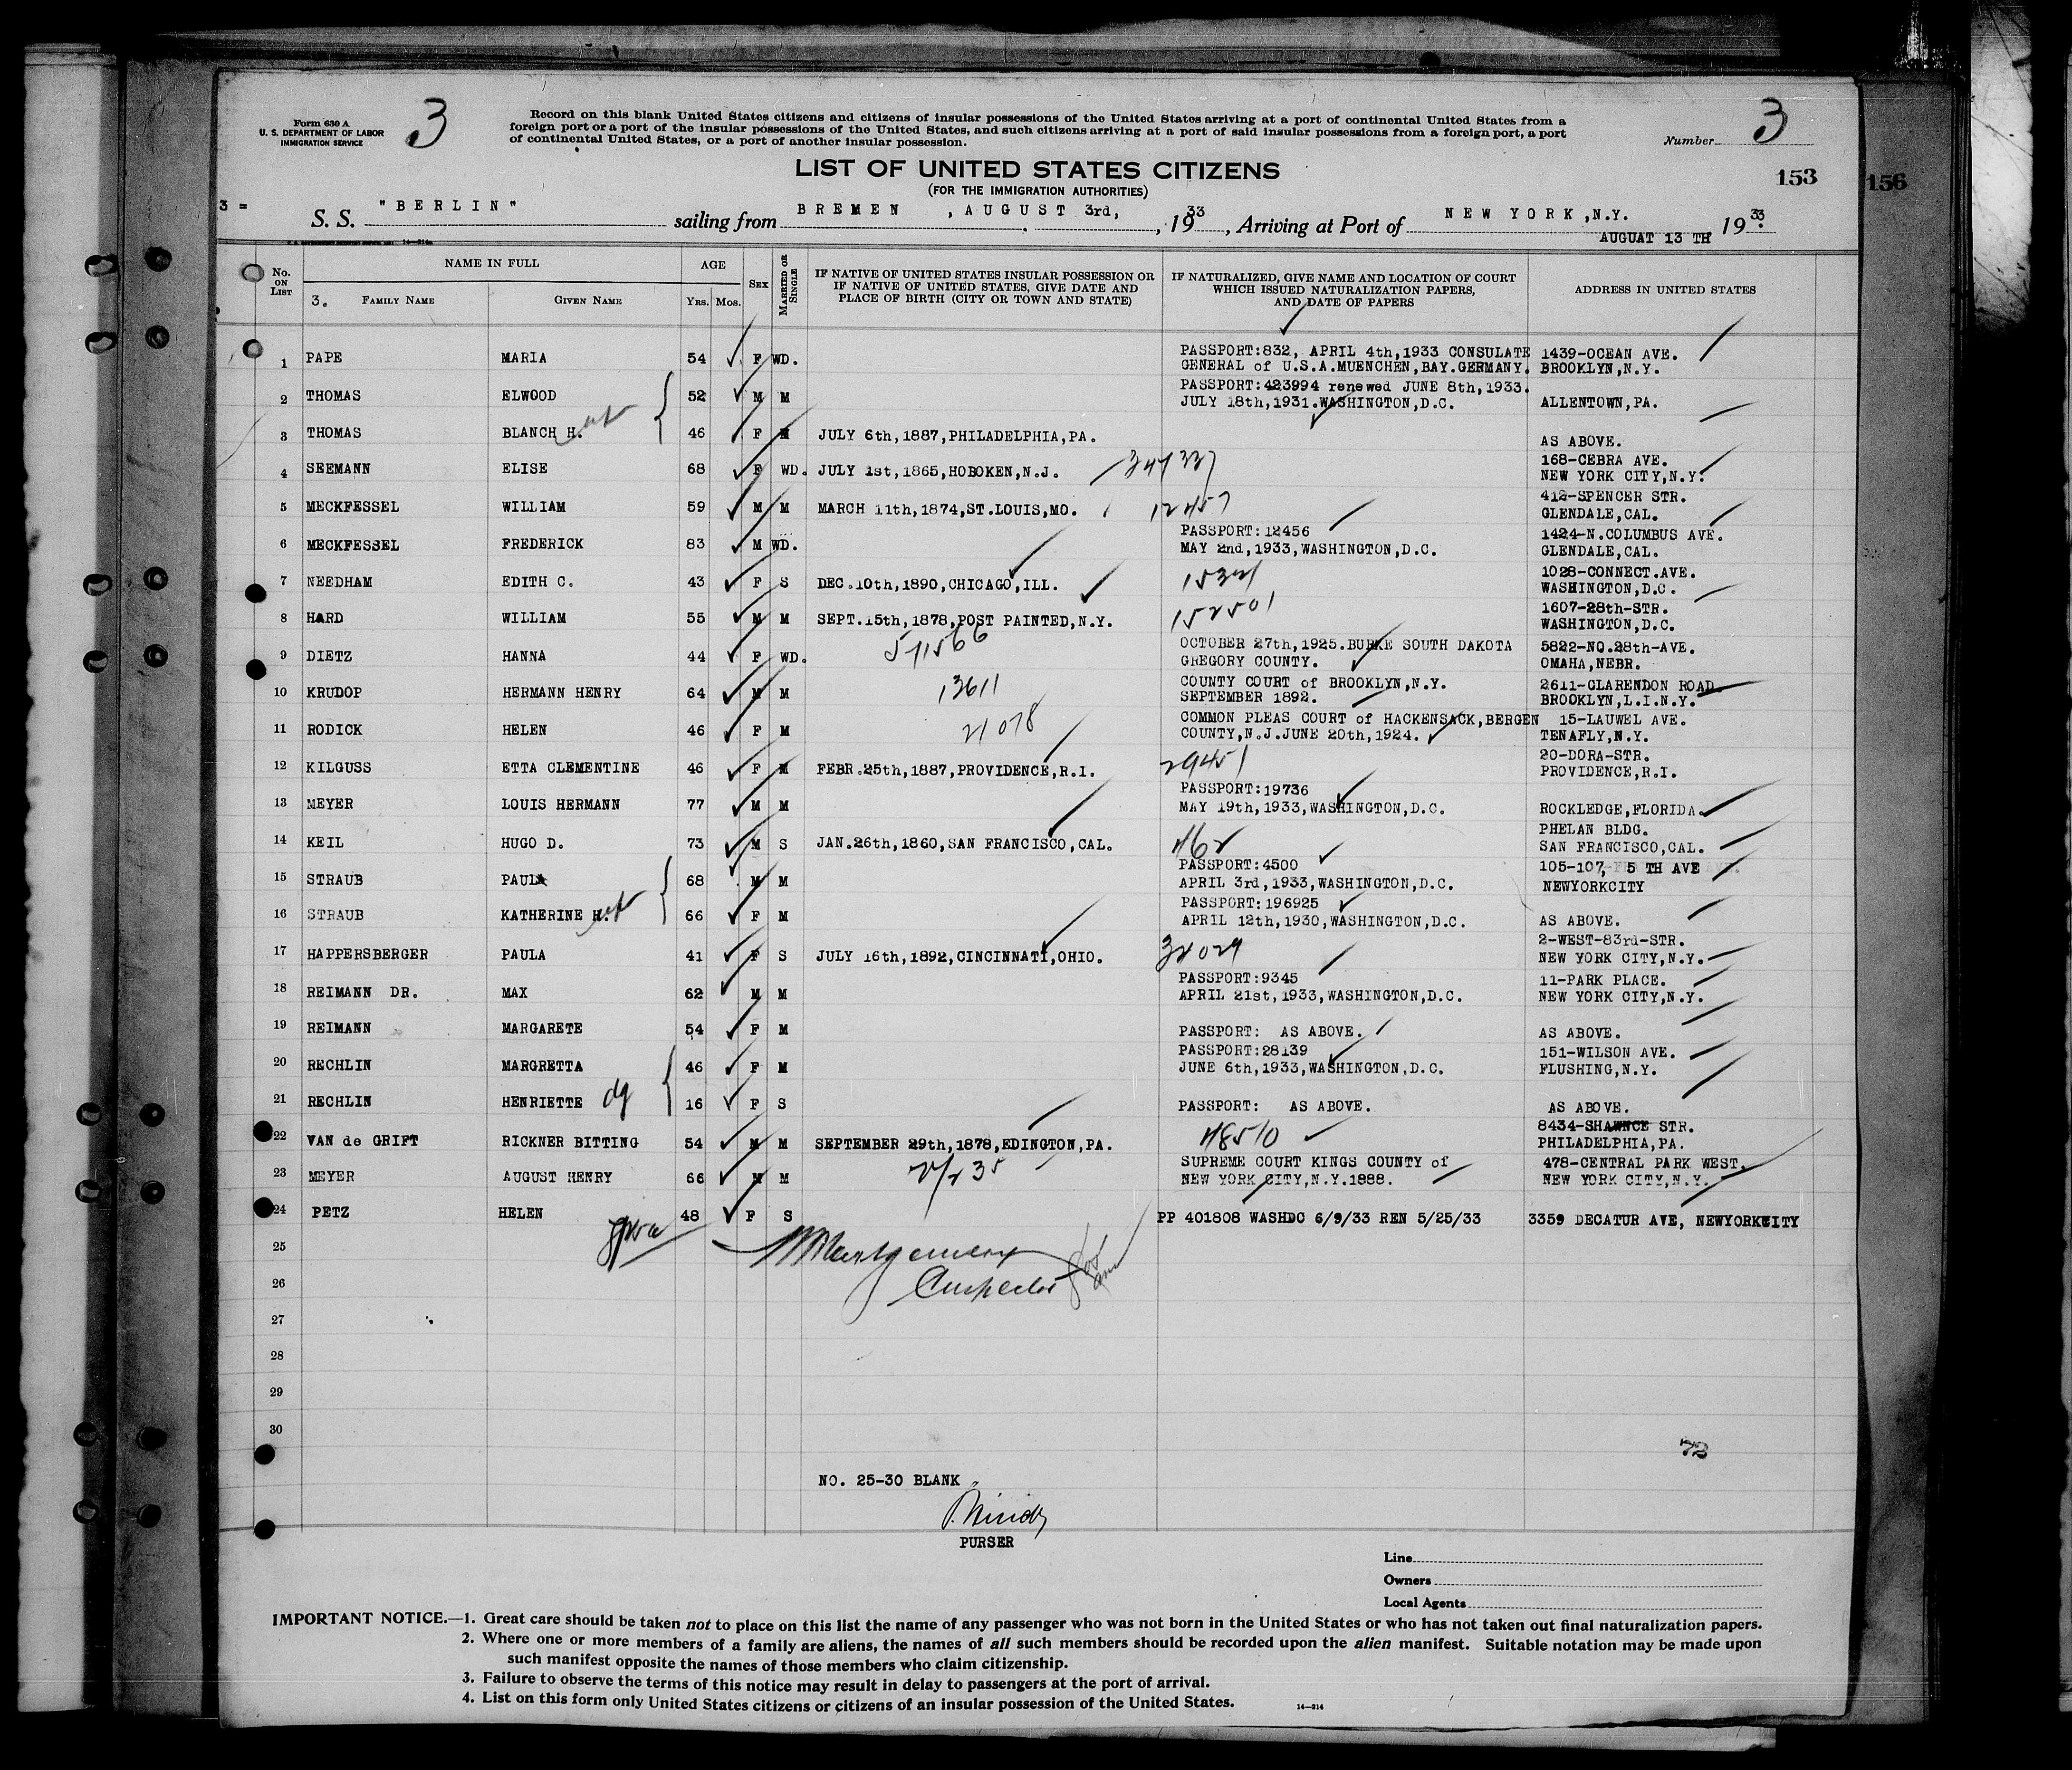 Form 630 A
U. S. DEPARTMENT OF LABOR
IMMIGRATION SERVICE
3
Record on this blank United States citizens and citizens of insular possessions of the United States arriving at a port of continental United States from a
foreign port or a port of the insular possessions of the United States, and such citizens arriving at a port of said insular possessions from a foreign port, a port
of continental United States, or a port of another insular possession.
Number 3
LIST OF UNITED STATES CITIZENS
(FOR THE IMMIGRATION AUTHORITIES)
153 156
3 =
S. S. "BERLIN" sailing from BREMEN, AUGUST 3rd, , 1933, Arriving at Port of NEW YORK, N.Y. 1933.
AUGUAT 13 TH
No. ON LIST NAME IN FULL AGE SEX MARRIED OR SINGLE IF NATIVE OF UNITED STATES INSULAR POSSESSION OR IF NATIVE OF UNITED STATES, GIVE DATE AND PLACE OF BIRTH (CITY OR TOWN AND STATE) IF NATURALIZED, GIVE NAME AND LOCATION OF COURT WHICH ISSUED NATURALIZATION PAPERS, AND DATE OF PAPERS ADDRESS IN UNITED STATES
3. FAMILY NAME GIVEN NAME Yrs. Mos.
1 PAPE MARIA 54 F WD. PASSPORT:832, APRIL 4th,1933 CONSULATE 1439-OCEAN AVE.
GENERAL of U.S.A.MUENCHEN,BAY.GERMANY. BROOKLYN,N.Y.
2 THOMAS ELWOOD 52 M M PASSPORT:423994 renewed JUNE 8th,1933.
JULY 18th,1931.WASHINGTON,D.C. ALLENTOWN,PA.
3 THOMAS BLANCH H. 46 F M JULY 6th,1887,PHILADELPHIA,PA. AS ABOVE.
4 SEEMANN ELISE 68 F WD. JULY 1st,1865,HOBOKEN,N.J. 168-CEBRA AVE.
NEW YORK CITY,N.Y.
5 MECKFESSEL WILLIAM 59 M M MARCH 11th,1874,ST.LOUIS,MO. 12457 412-SPENCER STR.
GLENDALE,CAL.
6 MECKFESSEL FREDERICK 83 M WD. PASSPORT:12456 1424-N.COLUMBUS AVE.
MAY 2nd,1933,WASHINGTON,D.C. GLENDALE,CAL.
7 NEEDHAM EDITH C. 43 F S DEC.10th,1890,CHICAGO,ILL. 1028-CONNECT.AVE.
WASHINGTON,D.C.
8 HARD WILLIAM 55 M M SEPT.15th,1878,POST PAINTED,N.Y. 152501 1607-28th-STR.
WASHINGTON,D.C.
9 DIETZ HANNA 44 F WD. 571566 OCTOBER 27th,1925.BURKE SOUTH DAKOTA 5822-NO.28th-AVE.
GREGORY COUNTY. OMAHA,NEBR.
10 KRUDOP HERMANN HENRY 64 M M 13611 COUNTY COURT of BROOKLYN,N.Y. 2611-CLARENDON ROAD
SEPTEMBER 1892. BROOKLYN,L.I.N.Y.
11 RODICK HELEN 46 F M 21078 COMMON PLEAS COURT of HACKENSACK,BERGEN 15-LAUWEL AVE.
COUNTY,N.J.JUNE 20th,1924. TENAFLY,N.Y.
12 KILGUSS ETTA CLEMENTINE 46 F M FEBR.25th,1887,PROVIDENCE,R.I. 29451 20-DORA-STR.
PROVIDENCE,R.I.
13 MEYER LOUIS HERMANN 77 M M PASSPORT:19736
MAY 19th,1933,WASHINGTON,D.C. ROCKLEDGE,FLORIDA.
14 KEIL HUGO D. 73 M S JAN.26th,1860,SAN FRANCISCO,CAL. 462 PHELAN BLDG.
SAN FRANCISCO,CAL.
15 STRAUB PAUL 68 M M PASSPORT:4500 105-107, 5 TH AVE
APRIL 3rd,1933,WASHINGTON,D.C. NEWYORKCITY
16 STRAUB KATHERINE H. 66 F M PASSPORT:196925
APRIL 12th,1930,WASHINGTON,D.C. AS ABOVE.
17 HAPPERSBERGER PAULA 41 F S JULY 16th,1892,CINCINNATI,OHIO. 32029 2-WEST-83rd-STR.
NEW YORK CITY,N.Y.
18 REIMANN DR. MAX 62 M M PASSPORT:9345 11-PARK PLACE.
APRIL 21st,1933,WASHINGTON,D.C. NEW YORK CITY,N.Y.
19 REIMANN MARGARETE 54 F M PASSPORT: AS ABOVE. AS ABOVE.
20 RECHLIN MARGRETTA 46 F M PASSPORT:28139 151-WILSON AVE.
JUNE 6th,1933,WASHINGTON,D.C. FLUSHING,N.Y.
21 RECHLIN HENRIETTE dg 16 F S PASSPORT: AS ABOVE. AS ABOVE.
22 VAN de GRIFT RICKNER BITTING 54 M M SEPTEMBER 29th,1878,EDINGTON,PA. 48510 8434-SHAWNCE STR.
PHILADELPHIA,PA.
23 MEYER AUGUST HENRY 66 M M SUPREME COURT KINGS COUNTY of 478-CENTRAL PARK WEST.
NEW YORK CITY,N.Y.1888. NEW YORK CITY,N.Y.
24 PETZ HELEN 48 F S PP 401808 WASHDC 6/9/33 REN 5/25/33 3359 DECATUR AVE, NEWYORKCITY
25 Montgomery
26 Inspector
27
28
29
30
72
NO. 25-30 BLANK
PURSER
Line
Owners
Local Agents
IMPORTANT NOTICE.—1. Great care should be taken not to place on this list the name of any passenger who was not born in the United States or who has not taken out final naturalization papers.
2. Where one or more members of a family are aliens, the names of all such members should be recorded upon the alien manifest. Suitable notation may be made upon
such manifest opposite the names of those members who claim citizenship.
3. Failure to observe the terms of this notice may result in delay to passengers at the port of arrival.
4. List on this form only United States citizens or citizens of an insular possession of the United States.
14—214